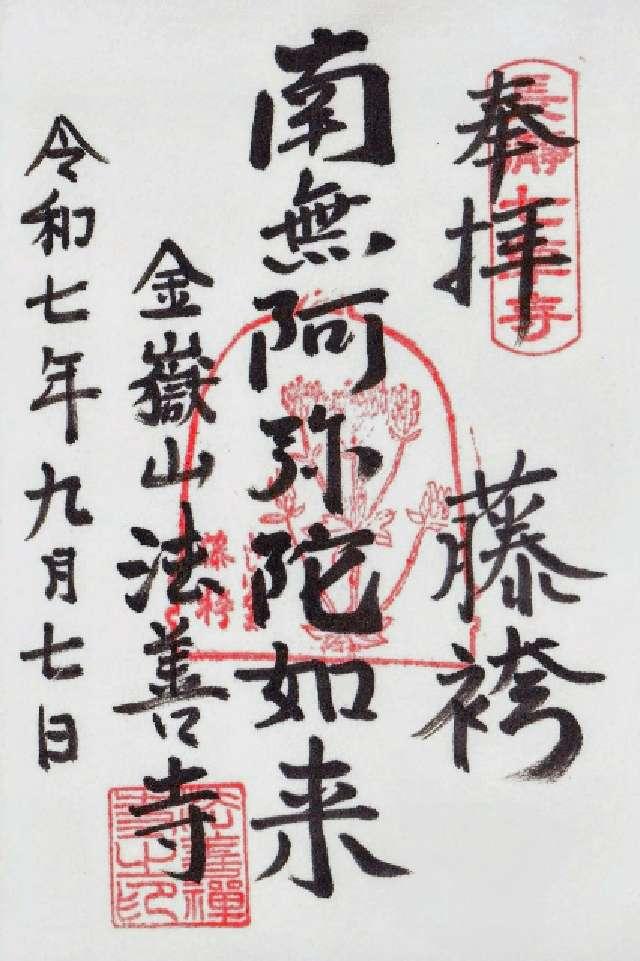 奉拝
長瀞七草寺
藤袴
南無阿弥陀如来
藤袴
金嶽山法善寺
令和七年九月七日